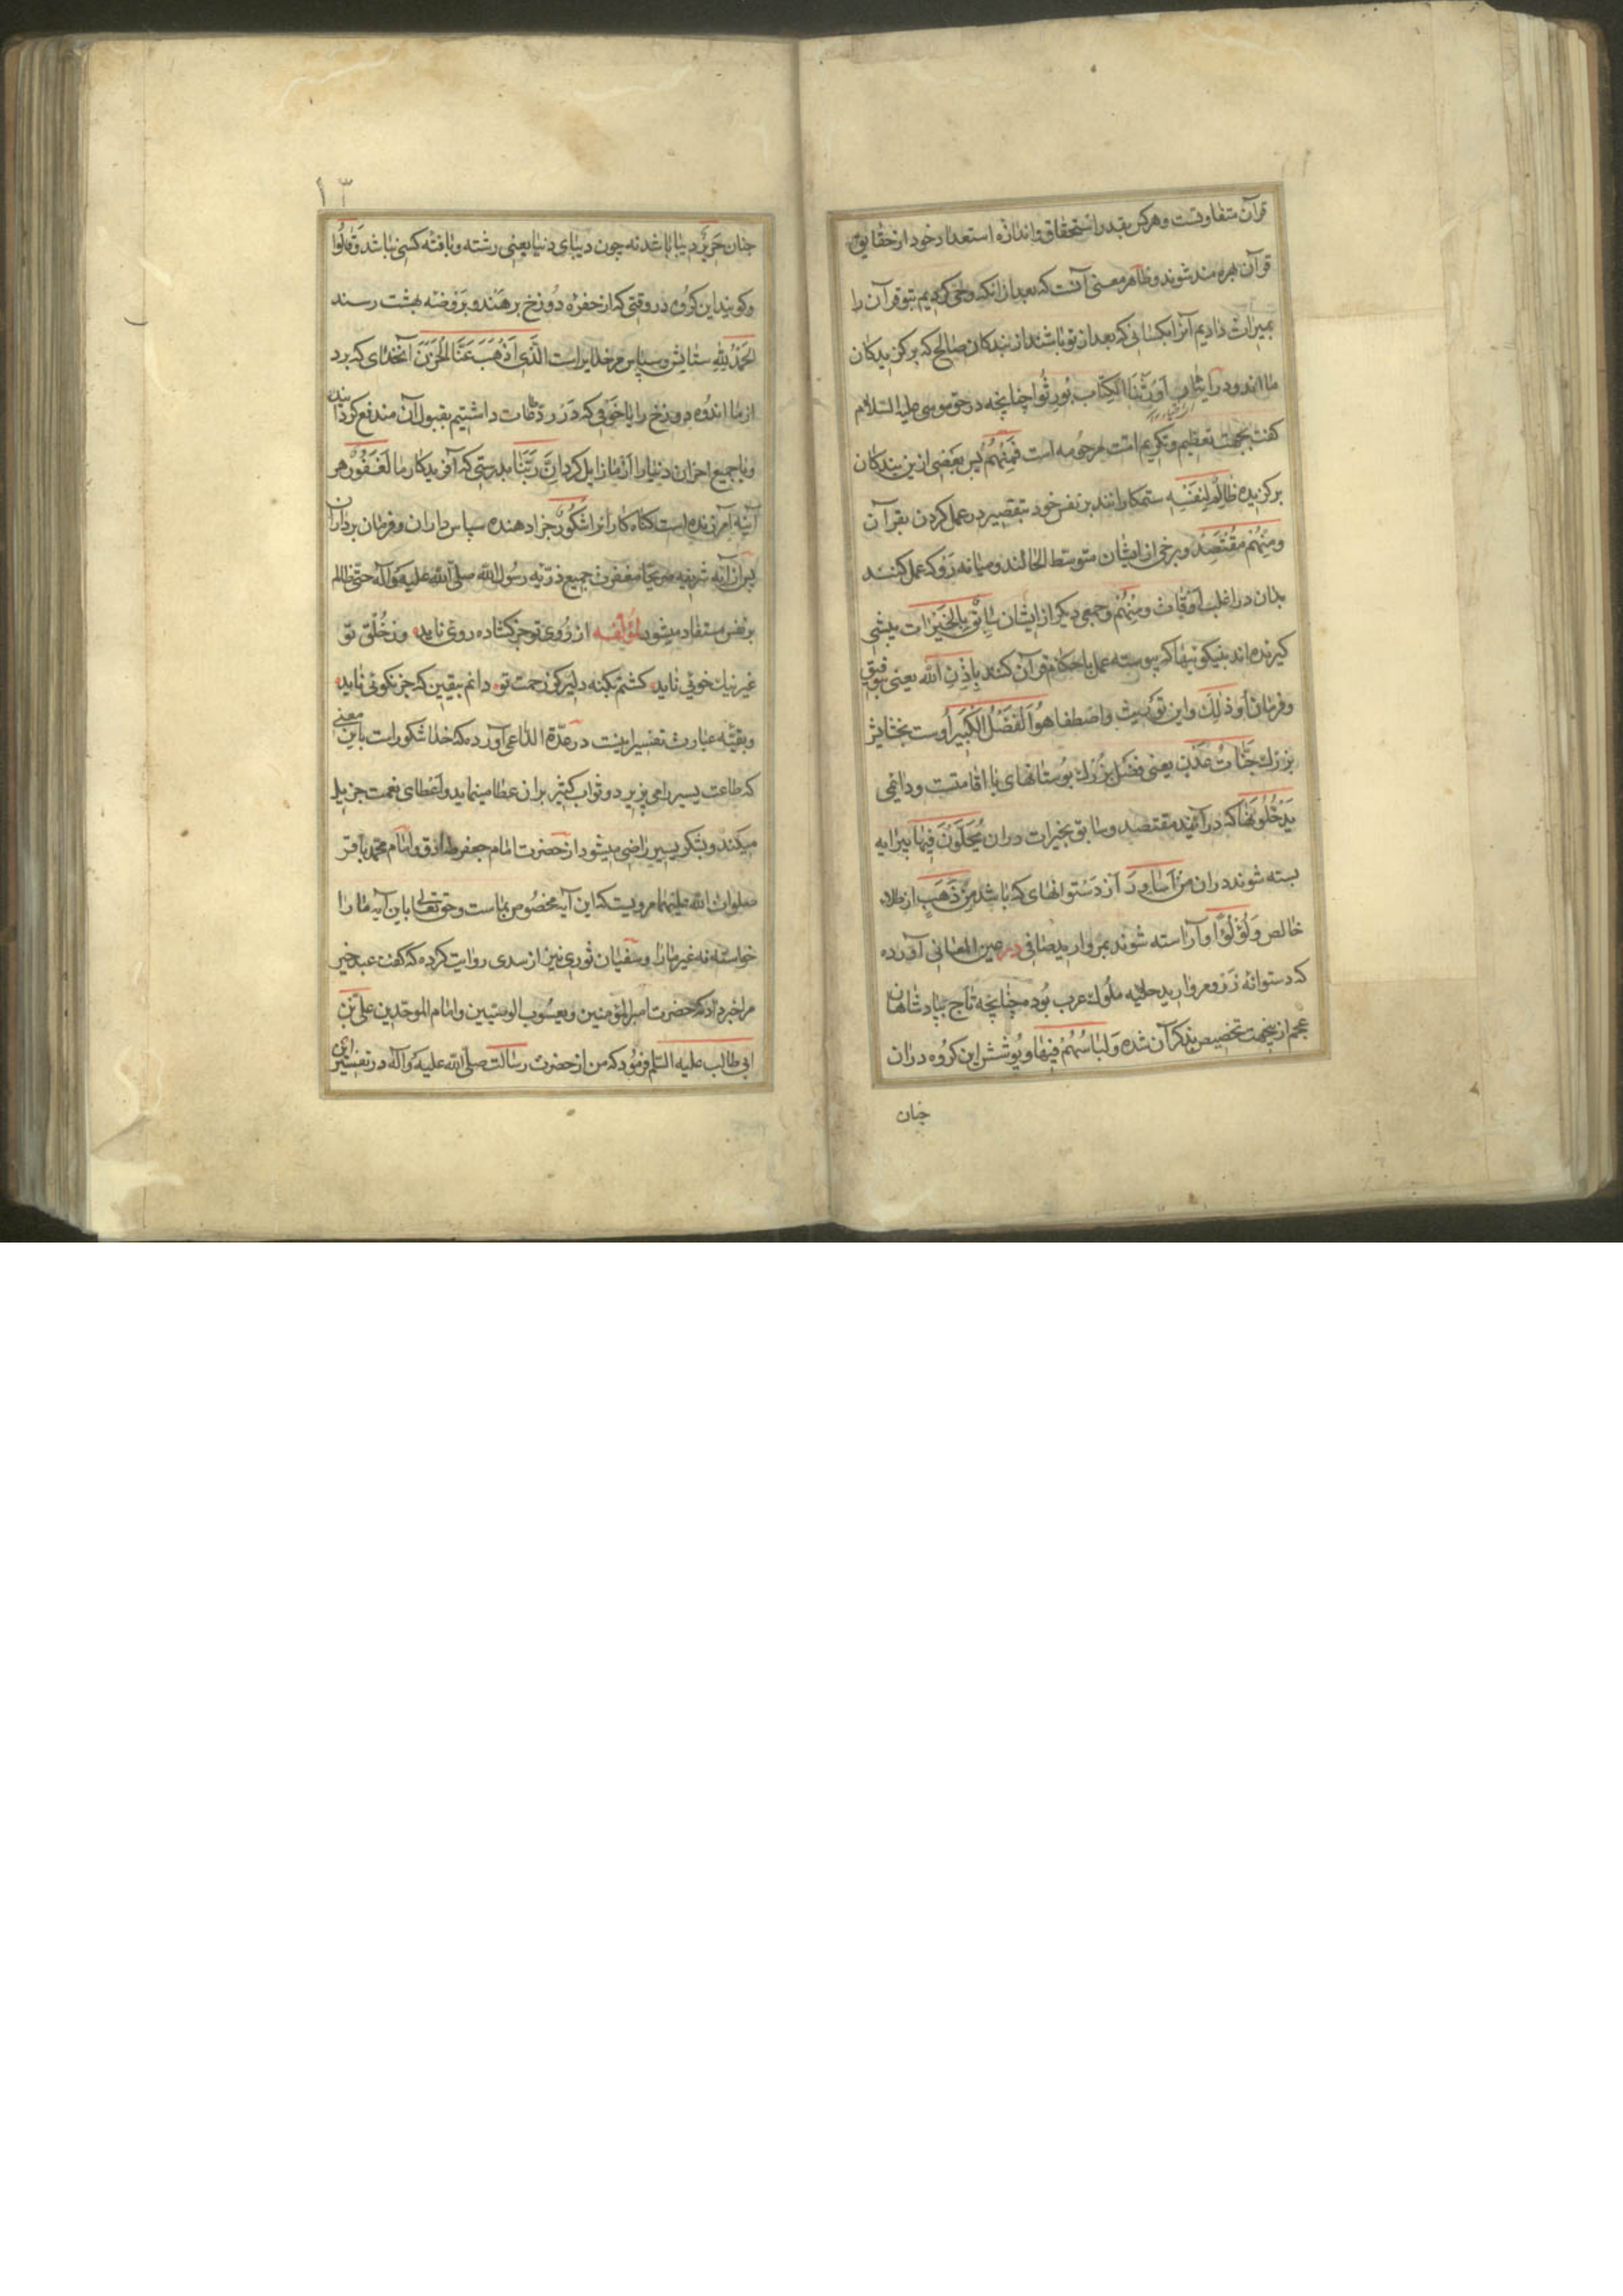 قرآن متفاوتست و هرکس بقدر استحقاق و اندازه استعداد خود از حقایق
قرآن بهره مند شوند و ظاهر معنی آنست که بعد از انکه وحی کردیم بتو قرآن را
بمیراث دادیم آنرا بکسانی که بعد از تو باشند از بندکان صالح که برکزیدکان
ما اند و در ایشان اَوْرَثْنَا الکِتابَ
کفت بجهت تعظیم و تکریم امت مرحومه است فَمِنْهُمْ پس بعضی ازین بندکان
برکزیده ظالِمٌ لِنَفْسِه ستمکارانند بر نفس خود بتقصیر در عمل کردن بقرآن
وَمِنْهُمْ مُقْتَصِدٌ و برخی از ایشان متوسط الحالند و میانه رو که عمل کنند
بدان در اغلب اوقات وَمِنْهُمْ و جمعی دیکر از ایشان سابِقٌ بِالخَیْراتِ پیشی
کیرنده اند بنیکوئیها که پیوسته عمل باحکام قرآن کنند بِاِذْنِ الله یعنی بتوفیق
و فرمان او ذٰلِکَ و این توریث و اصطفا هُوَ الفَضْلُ الکَبیر اوست بخشایش
بزرک جَنّاتُ عَدْنٍ یعنی فضل بزرک بوستانهای با اقامتست و دائمی
یَدْخُلُونَها که در آیند مقتصد و سابق بخیرات دران یُحَلَّوْنَ فیها پیرایه
بسته شوند دران مِنْ اَساوِرَ از دستوانهای که باشد مِنْ ذَهَبٍ از طلاء
خالص وَلُؤْلُؤًا و آراسته شوند بمروارید صافی در عین المعانی آورده
که دستوانه زر و مروارید حلیه ملوک عرب بوده چنانچه تاج بپادشاهان
عجم ازینجهت تخصیص بذکر آن شده وَلِباسُهُمْ فیها و پوشش این کروه دران
جنان
۱۳
جنان حَریرٌ دیبا باشد نه چون دیبای دنیا یعنی رشته و بافته کسی نباشد وَقالُوا
و کویند این کروه در وقتی که از حفره دوزخ برهند و بروضه بهشت رسند
الحَمْدُ لِلّٰهِ ستایش و سپاس مر خدایراست الَّذی اَذْهَبَ عَنَّا الحَزَنَ آنخدای که برد
از ما اندوه دوزخ را یا خوفی که در رد طاعات داشتیم بقبول آن مندفع کردانید
و یا جمیع احزان دنیا را از ما زایل کرد اِنَّ رَبَّنا بدرستی که آفریدکار ما لَغَفُورٌ هر
آینه آمرزنده است کناه کارانرا شَکُورٌ جزا دهنده سپاس داران و فرمان برداران
پس از آیه شریفه صریحا مغفرت جمیع ذریه رسول الله صلی الله علیه و آله حتی ظالم
بر نفس مستفاد میشود لمؤلفه از روی تو جز کشاده روئی ناید وز خلق تو
غیر نیک خوئی ناید کشتم بکنه دلیر کز رحمت تو دانم بیقین که جز نکوئی ناید
و بقیه عبارت تفسیر اینست در عدة الداعی آورده که خدا شکور است باین معنی
که طاعت یسیر را می پزیرد و ثواب کثیر بران عطا مینماید و اعطای نعمت جزیل
میکند و بشکر یسیر راضی میشود از حضرت امام جعفر صادق و امام محمد باقر
صلوات الله علیهما مرویست که این آیه مخصوص بماست و حق تعالی باین آیه ما را
خواسته نه غیر ما را و سفیان ثوری نیز از سدی روایت کرده که کفت عبد خیر
مرا خبر داد که حضرت امیر المؤمنین و یعسوب الوصیین و امام الموحدین علی بن
ابی طالب علیه السلم فرمود که من از حضرت رسالت صلی الله علیه و آله در تفسیر این